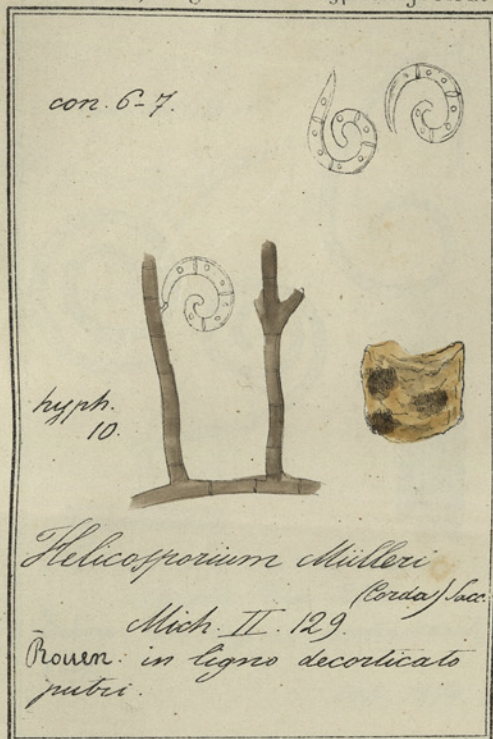 con. 6-7.
hyph.
10.
Helicosporium Mülleri
(Corda) Sacc.
Mich. II. 129.
Rouen: in ligno decorticato
putri.